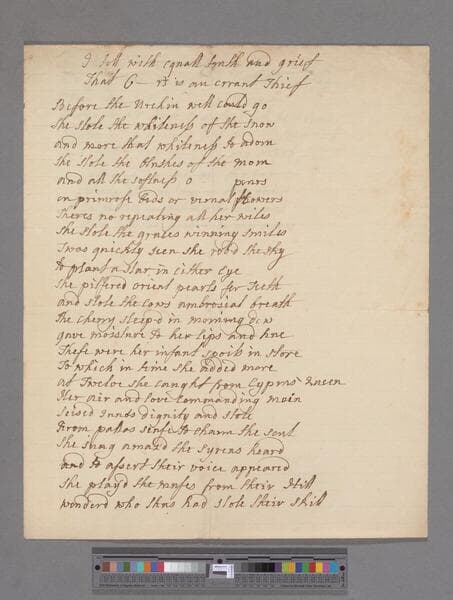 I tell with equall truth and grief
That C— rs is an errant Thief
Before the Urchin well could go
She stole the whiteness of the snow
and more that whiteness to adorn
She stole the blushes of the morn
and all the softness o
on primrose buds or vernal flowers
Theres no repeating all her wiles
She stole the graces winning smiles
Twas quickly seen she rob'd the sky
to plant a star in either Eye
She pilfered orient pearls for teeth
and stole the cows ambrosial breath
The cherry steep'd in morning dew
gave moisture to her lips and hue
These were her infant spoils in store
To which in time she added more
at Twelve she caught from Cyprus Queen
Her air and love Commanding mein
Seised Junos dignity and stole
From palas sense to charm the soul
She sung amaz'd the syrens heard
and to assert their voice appeared
She play'd the muses from their Hill
wonderd who thus had stole their skill